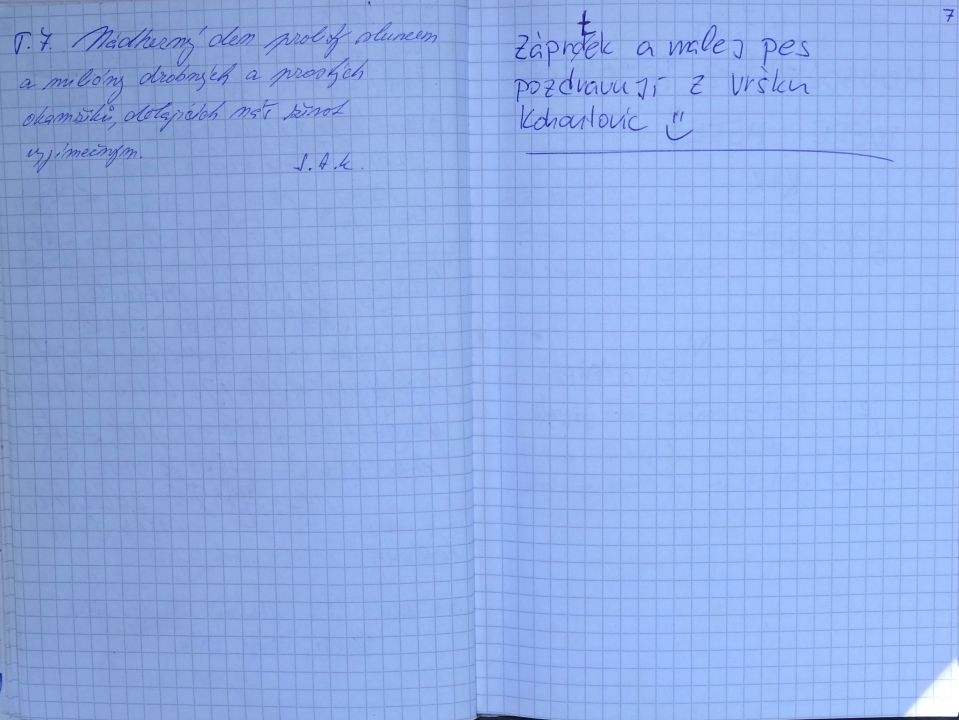 7.7. Nádherný den prolitý sluncem
a milióny drobných a prostých
okamžiků, dělajících náš život
vyjímečným.
J.A.K.
7
t
Záprdek a malej pes
pozdravují z vršku
Koharlovic